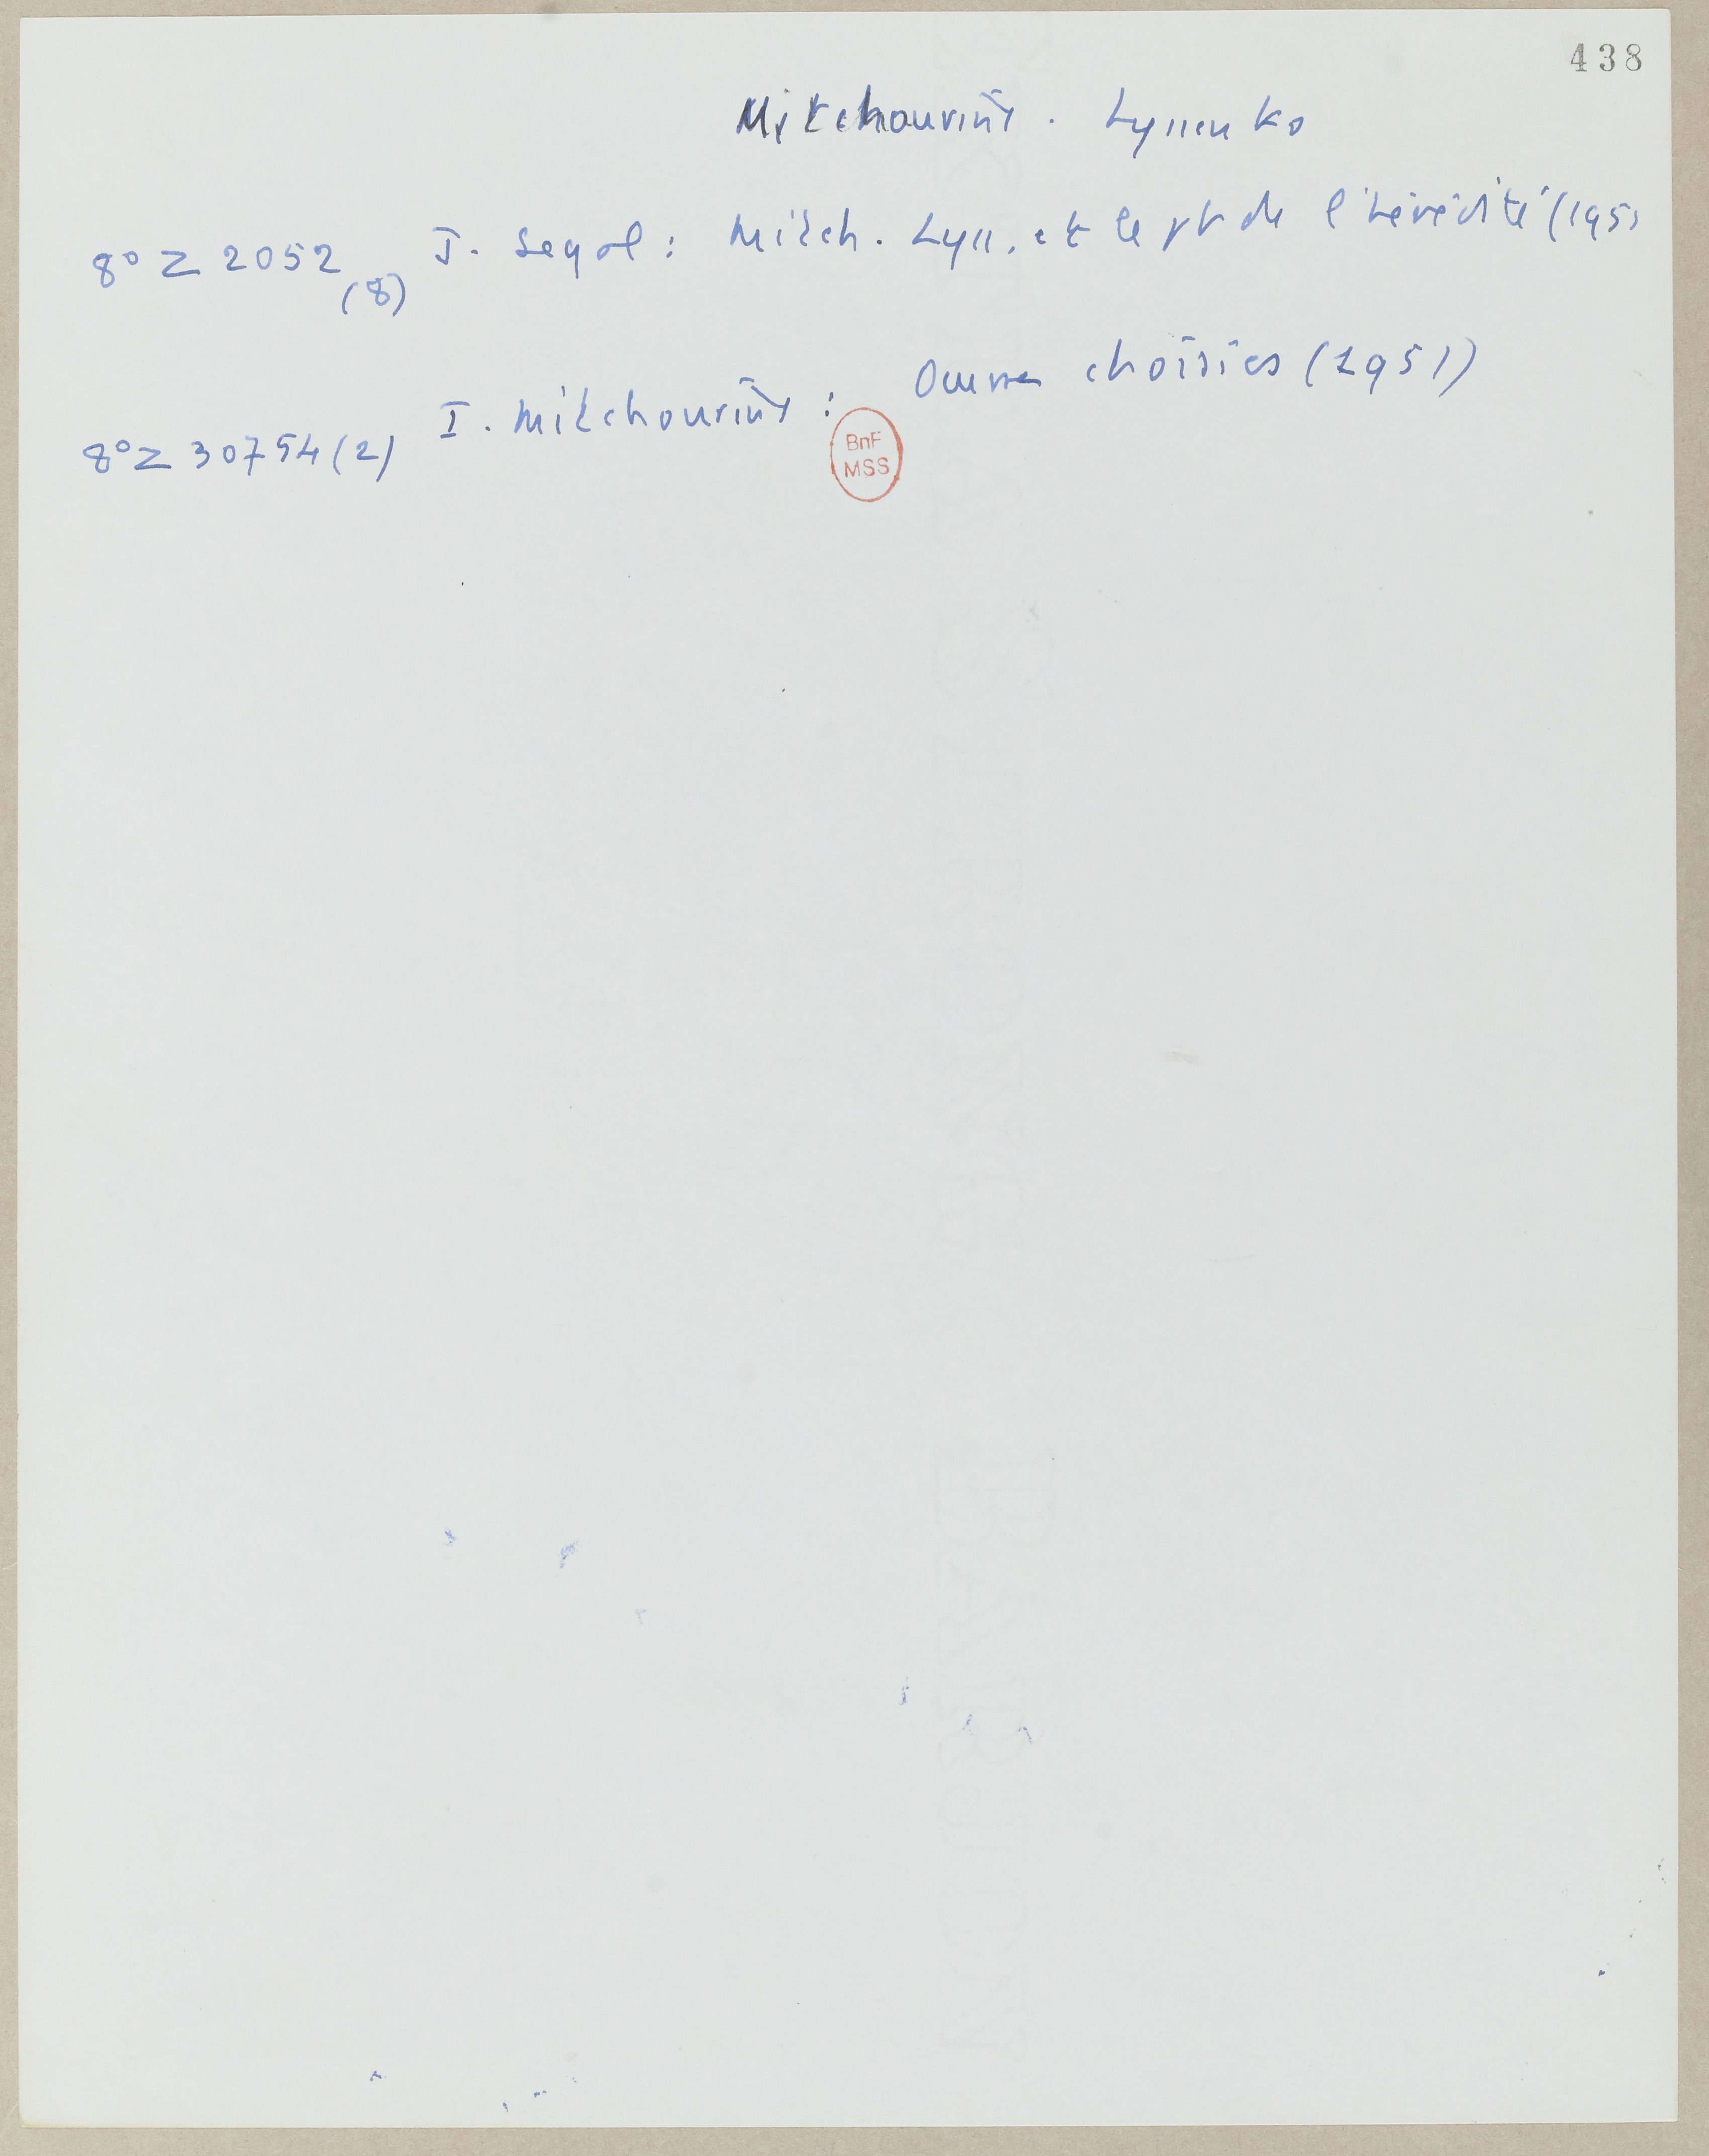 438
Mitchourine. Lyssenko
8° Z 2052 (8) J. Segal : Mitch. Lyss. et le pb de l'hérédité (1951
8° Z 30754 (2) I. Mitchourine : Oeuvres choisies (1951)
BnF
MSS